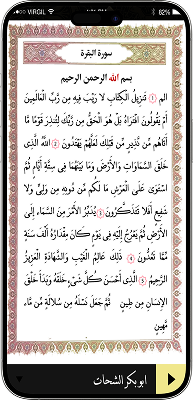 VIRGIL
82%
سورة البقرة
بسم الله الرحمن الرحيم
الم ١ تَنزِيلُ الْكِتَابِ لَا رَيْبَ فِيهِ مِن رَّبِّ الْعَالَمِينَ
أَمْ يَقُولُونَ افْتَرَاهُ بَلْ هُوَ الْحَقُّ مِن رَّبِّكَ لِتُنذِرَ قَوْمًا مَّا
أَتَاهُم مِّن نَّذِيرٍ مِّن قَبْلِكَ لَعَلَّهُمْ يَهْتَدُونَ ٢ اللَّهُ الَّذِي
خَلَقَ السَّمَاوَاتِ وَالْأَرْضَ وَمَا بَيْنَهُمَا فِي سِتَّةِ أَيَّامٍ ثُمَّ
اسْتَوَى عَلَى الْعَرْشِ مَا لَكُم مِّن دُونِهِ مِن وَلِيٍّ وَلَا
شَفِيعٍ أَفَلَا تَتَذَكَّرُونَ يُدَبِّرُ الْأَمْرَ مِنَ السَّمَاءِ إِلَى
الْأَرْضِ ثُمَّ يَعْرُجُ إِلَيْهِ فِي يَوْمٍ كَانَ مِقْدَارُهُ أَلْفَ سَنَةٍ
مِّمَّا تَعُدُّونَ ذَلِكَ عَالِمُ الْغَيْبِ وَالشَّهَادَةِ الْعَزِيزُ
الرَّحِيمُ الَّذِي أَحْسَنَ كُلَّ شَيْءٍ خَلَقَهُ وَبَدَأَ خَلْقَ
الْإِنسَانِ مِن طِينٍ ثُمَّ جَعَلَ نَسْلَهُ مِن سُلَالَةٍ مِّن مَّاء
مَّهِينٍ
ابوبكر الشحات